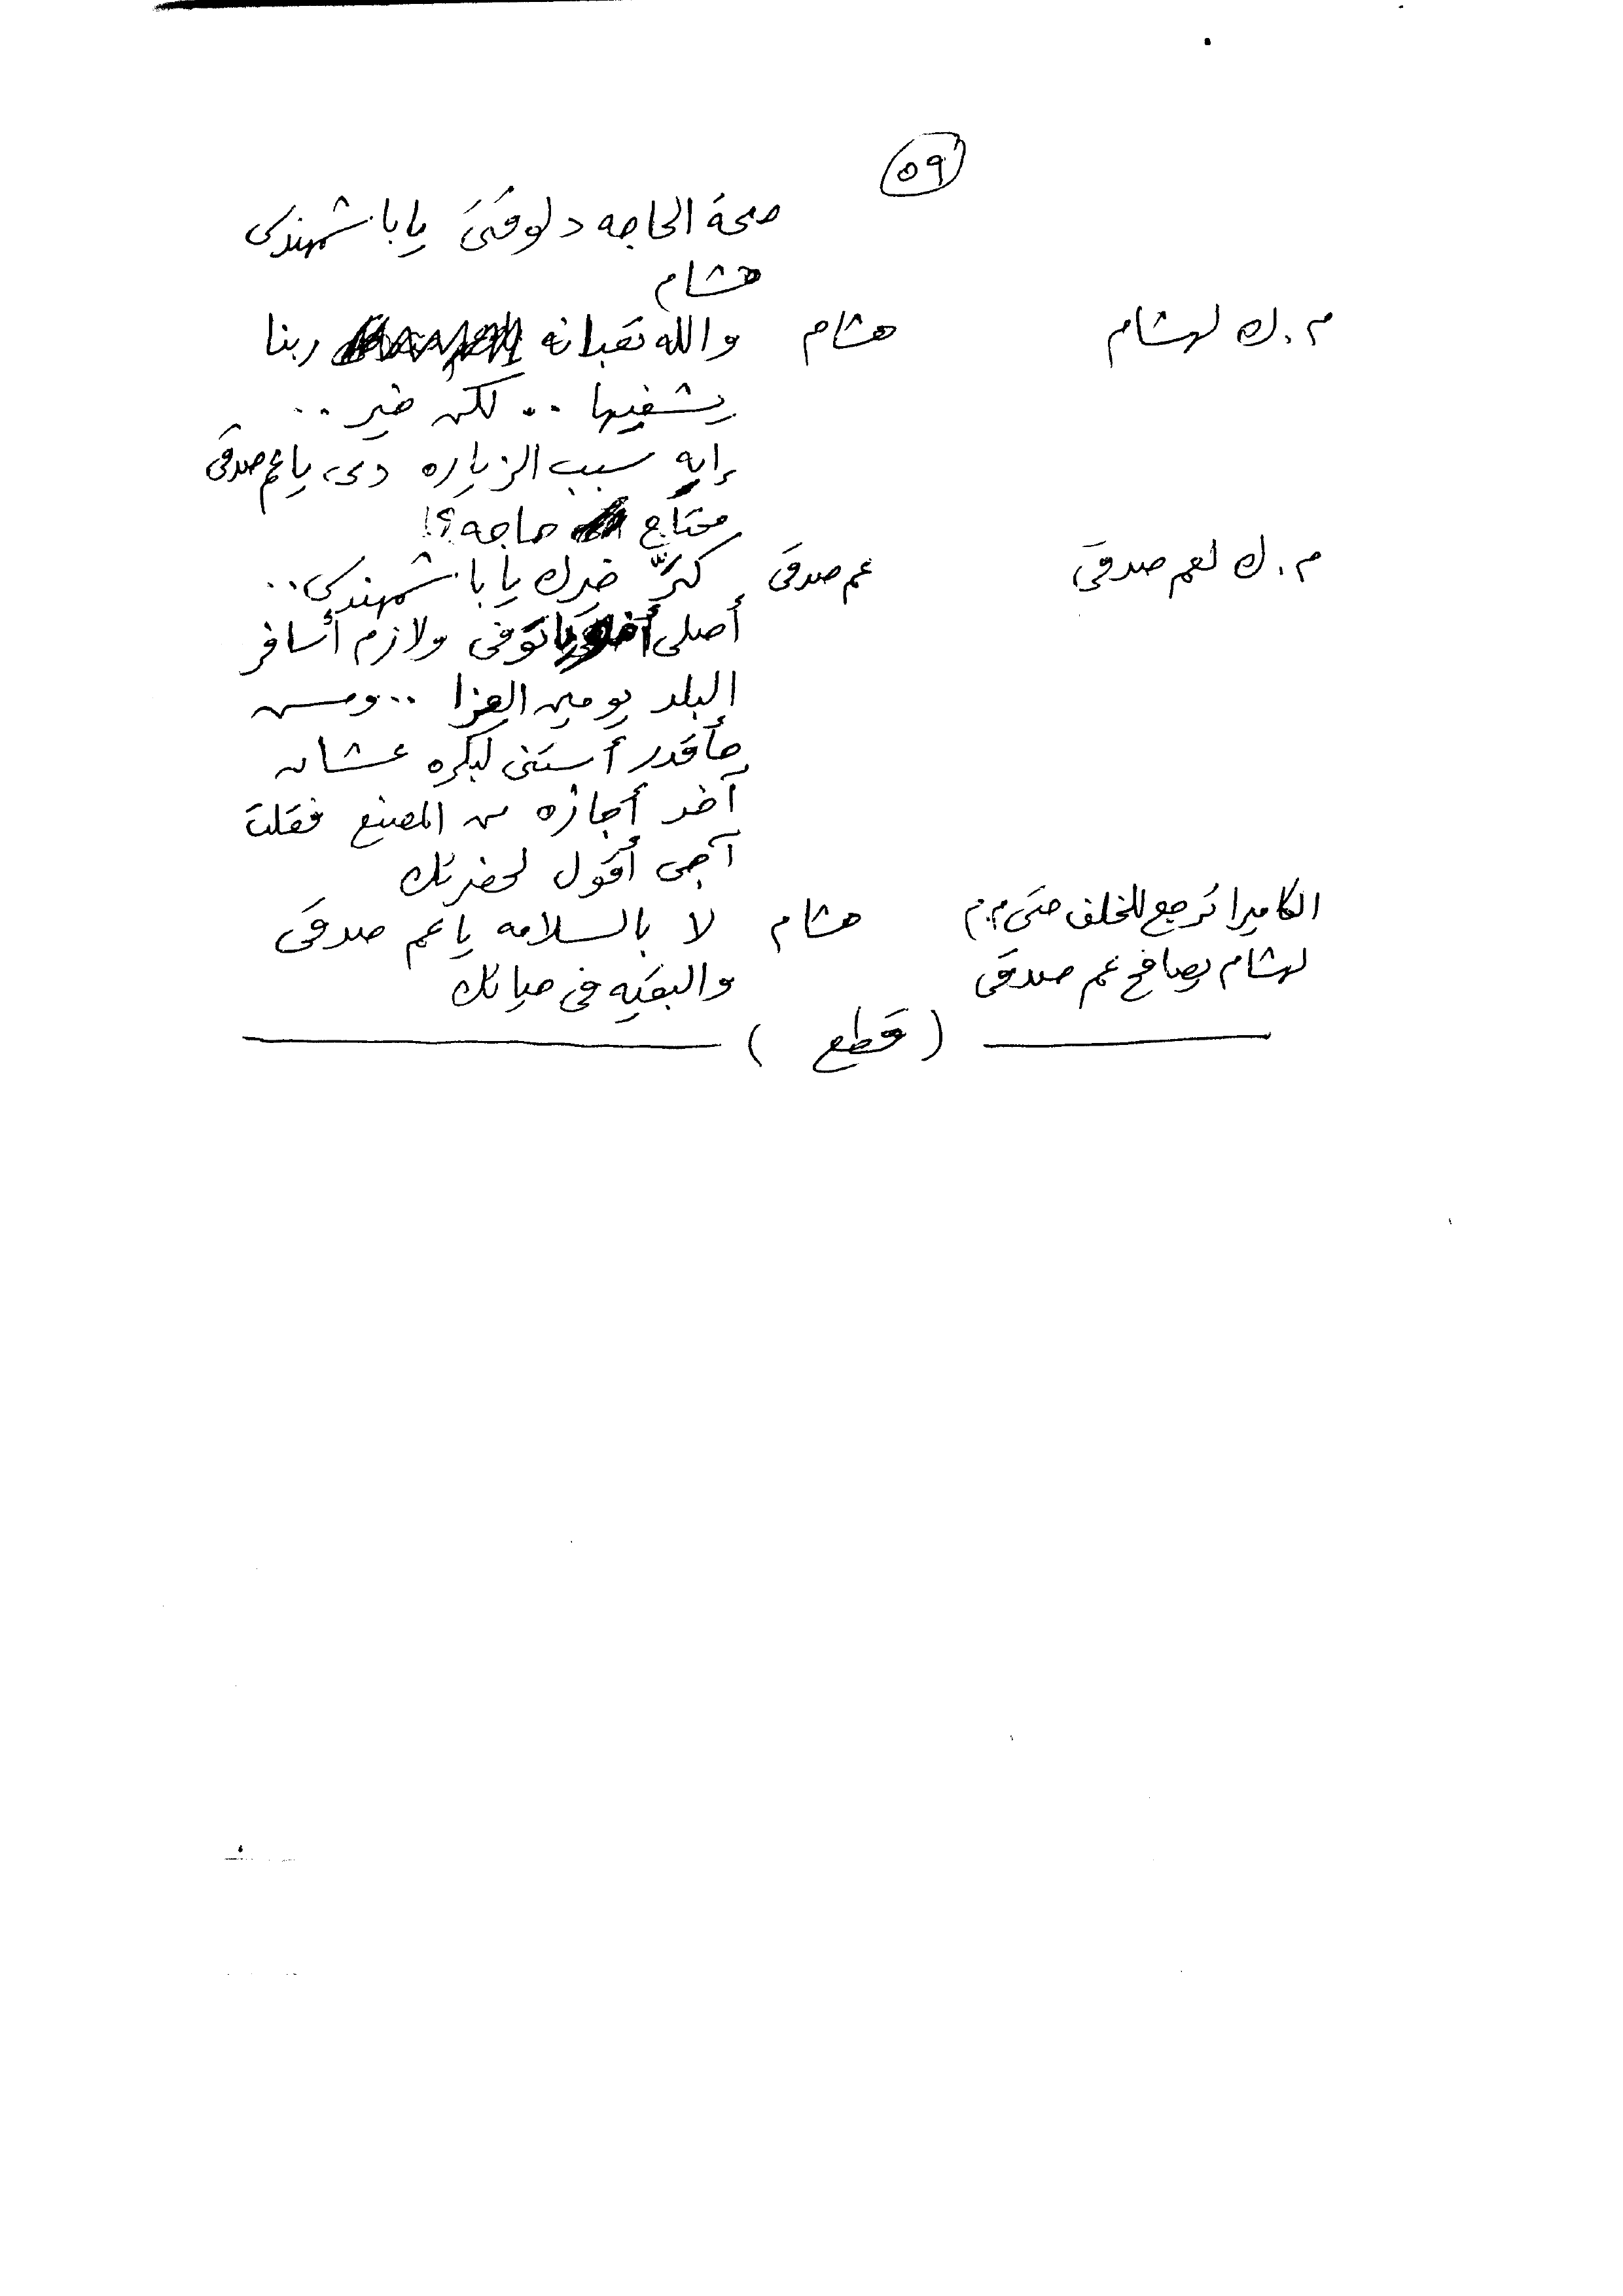 ٥٩
صحة الحاجه دلوقتى يا باشمهندس
هشام
م . ك لهشام    هشام    والله تعبانه ربنا
يشفيها .. لكن خير ..
إيه سبب الزياره دى يا عم صدقى
محتاج حاجه ؟!
م . ك لعم صدقى    عم صدقى    كتّر خيرك يا باشمهندس ..
أصلى توفى ولازم أسافر
البلد يومين العزا .. ومش
حأقدر أستنى لبكره عشان
آخد أجازه من المصنع فقلت
آجى أقول لحضرتك
الكاميرا ترجع للخلف حتى م . م    هشام    لا بالسلامه يا عم صدقى
لهشام يصافح عم صدقى    والبقيه فى حياتك
( قطع )